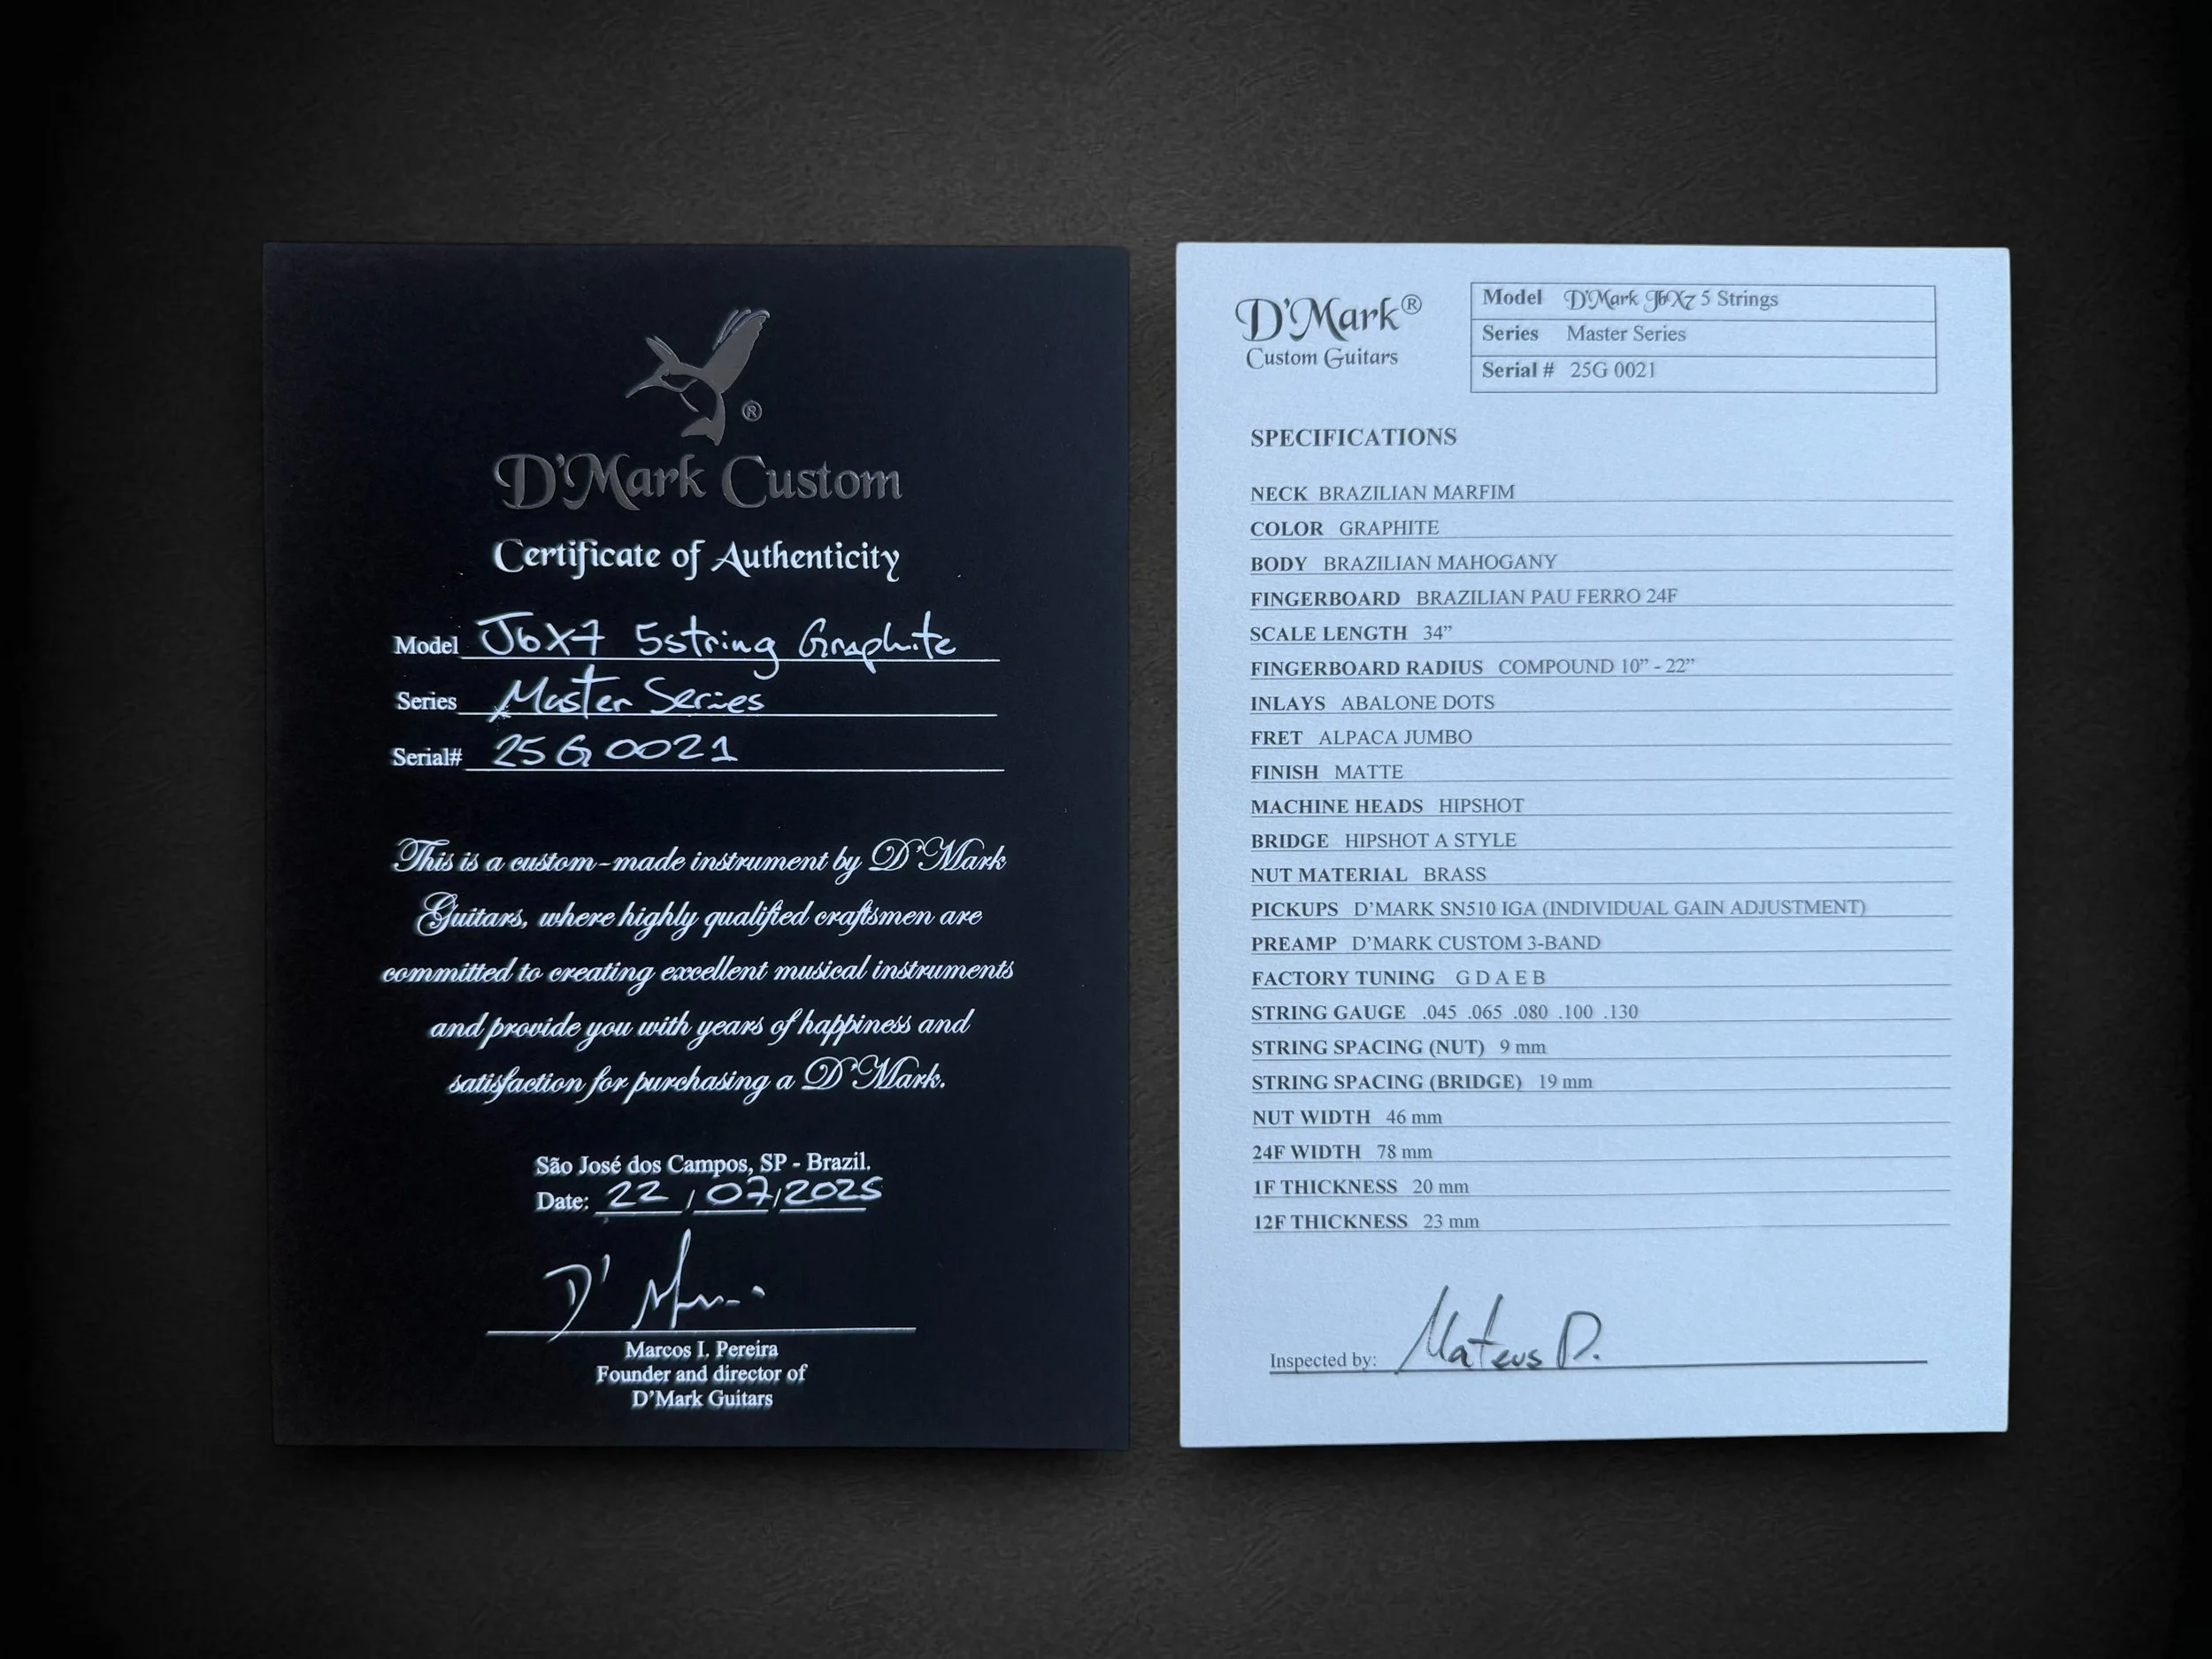 ®
D'Mark Custom
Certificate of Authenticity
Model J6X7 5string Graphite
Series Master Series
Serial# 25G0021
This is a custom-made instrument by D'Mark
Guitars, where highly qualified craftsmen are
committed to creating excellent musical instruments
and provide you with years of happiness and
satisfaction for purchasing a D'Mark.
São José dos Campos, SP - Brazil.
Date: 22 / 07 / 2025
Marcos I. Pereira
Founder and director of
D'Mark Guitars
D'Mark®
Custom Guitars
Model D'Mark J6X7 5 Strings
Series Master Series
Serial # 25G 0021
SPECIFICATIONS
NECK BRAZILIAN MARFIM
COLOR GRAPHITE
BODY BRAZILIAN MAHOGANY
FINGERBOARD BRAZILIAN PAU FERRO 24F
SCALE LENGTH 34”
FINGERBOARD RADIUS COMPOUND 10” - 22”
INLAYS ABALONE DOTS
FRET ALPACA JUMBO
FINISH MATTE
MACHINE HEADS HIPSHOT
BRIDGE HIPSHOT A STYLE
NUT MATERIAL BRASS
PICKUPS D’MARK SN510 IGA (INDIVIDUAL GAIN ADJUSTMENT)
PREAMP D’MARK CUSTOM 3-BAND
FACTORY TUNING G D A E B
STRING GAUGE .045 .065 .080 .100 .130
STRING SPACING (NUT) 9 mm
STRING SPACING (BRIDGE) 19 mm
NUT WIDTH 46 mm
24F WIDTH 78 mm
1F THICKNESS 20 mm
12F THICKNESS 23 mm
Inspected by: Mateus D.